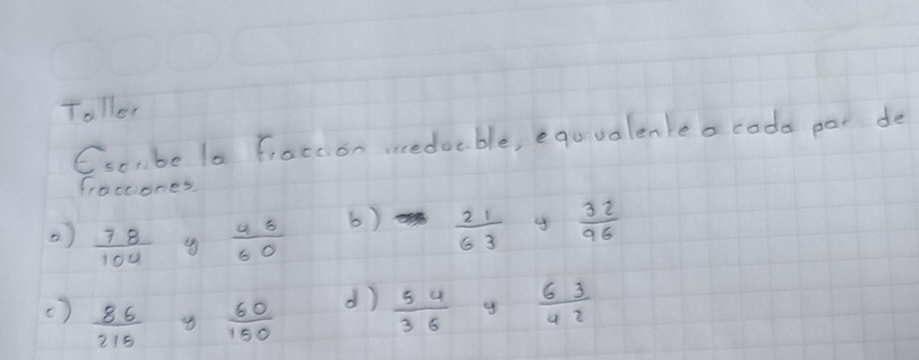 Taller
Escribe la fracción irreducible, equivalente a cada par de
fracciones.
a) 78/104 y 45/60 b) 21/63 y 32/96
c) 86/215 y 60/150 d) 54/36 y 63/42